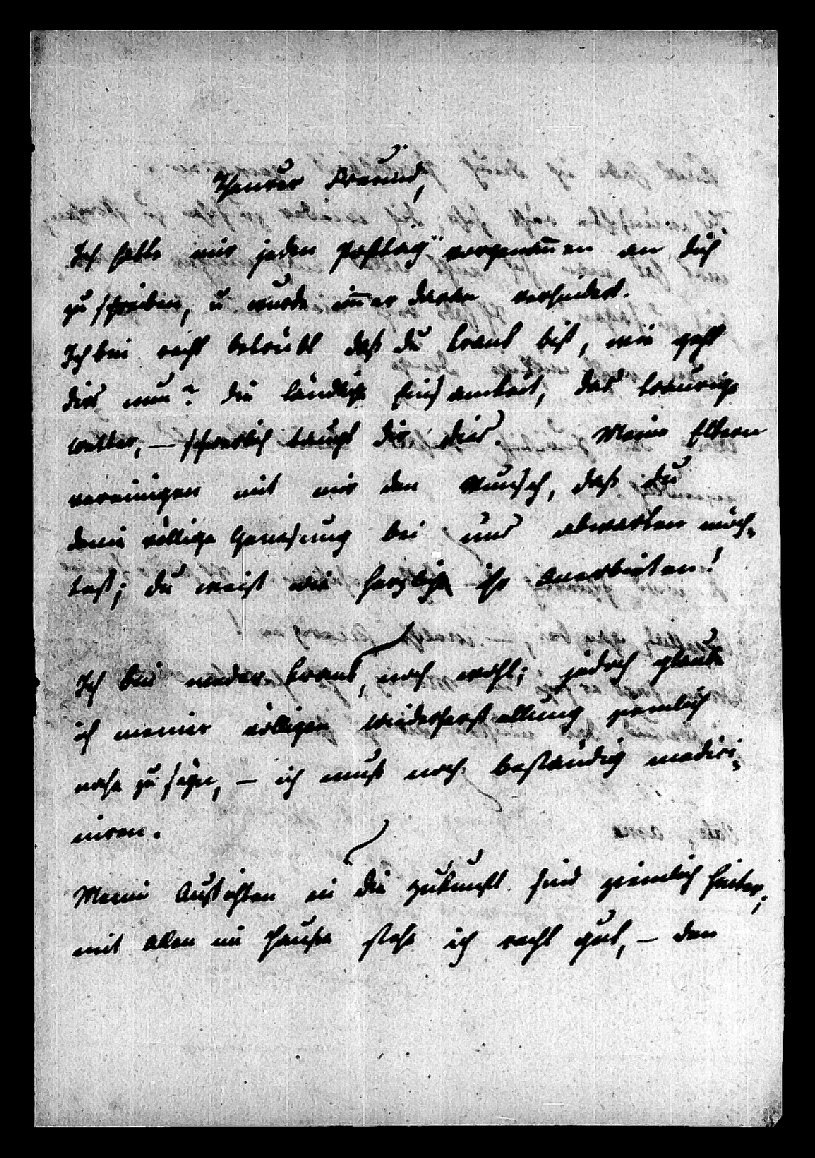 Theurer Freund,
Ich hatte mir jeden Posttag vorgenommen an dich
zu schreiben, u wurde immer daran verhindert.
Ich bin recht betrübt daß du krank bist, wie geht
dirs nun? die ländliche Einsamkeit, das traurige
Wetter, — schwerlich taugt dir dies. Meine Eltern
vereinigen mit mir den Wunsch, daß du
deine völlige Genesung bei uns abwarten möch-
test; du weist wie herzlich ihr Anerbieten!
Ich bin weder krank, noch wohl; jedoch glaube
ich meiner völligen Wiederherstellung ziemlich
nahe zu seyn, — ich muß noch beständig medizi-
niren.
Meine Aussichten in die Zukunft sind ziemlich heiter;
mit allen im Hause stehe ich recht gut, — den